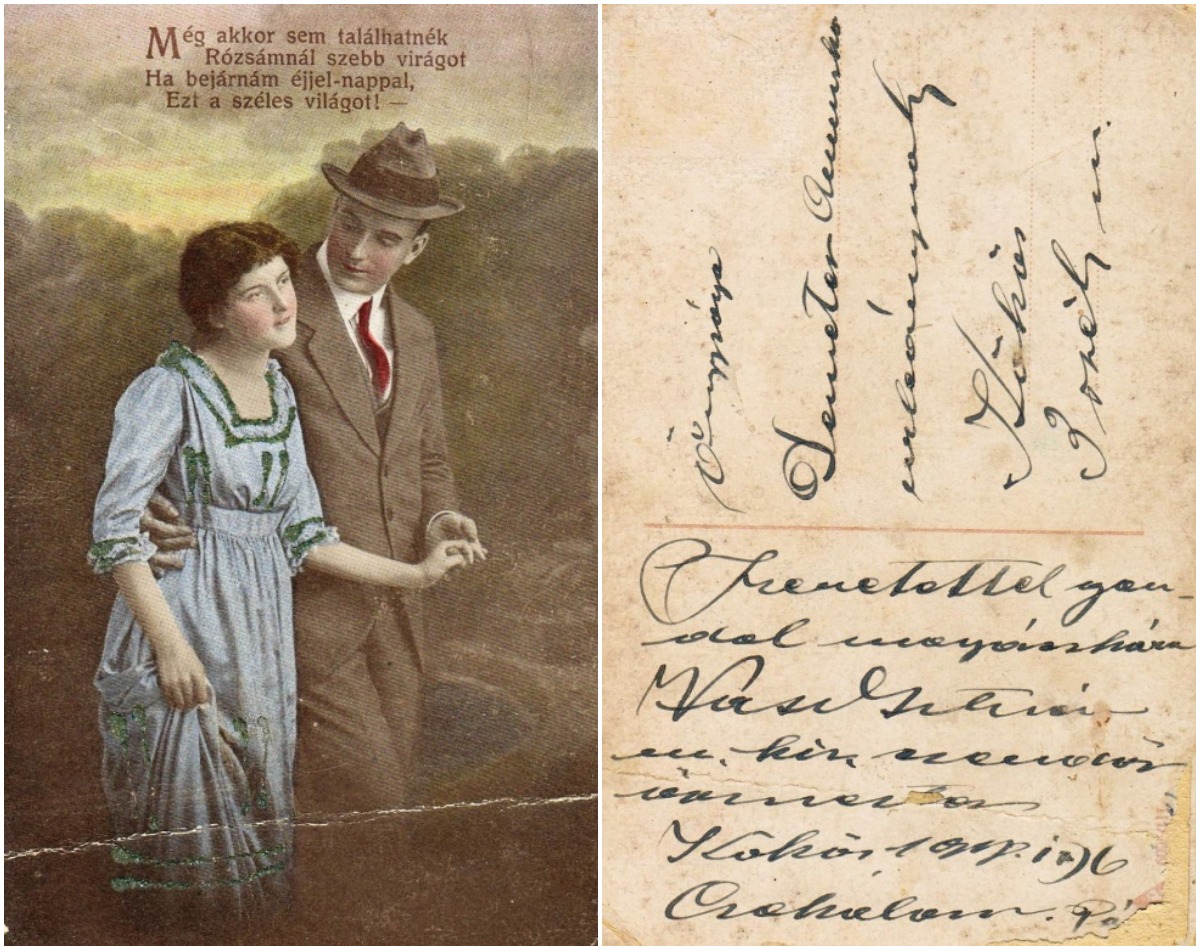 Még akkor sem találhatnék
Rózsámnál szebb virágot
Ha bejárnám éjjel-nappal,
Ezt a széles világot! —
Őnagysága
Demeter Annuska
urleánynak
Kökös
3 szék m.
Szeretettel gon-
dol magácskára
Vass István
m. kir. csendőr
őrmester
Kökös